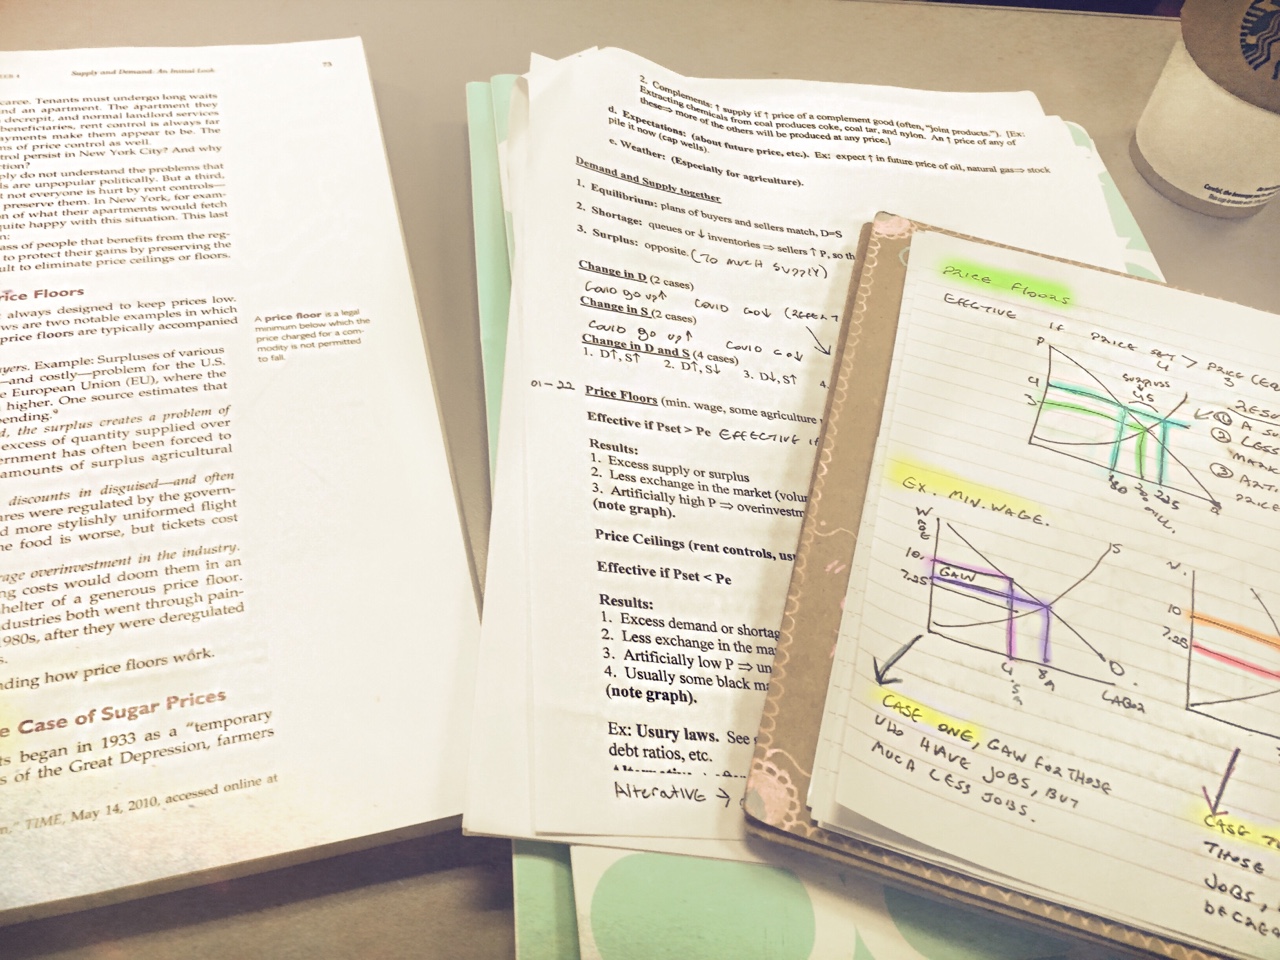 Supply and Demand: An Initial Look
73
carce. Tenants must undergo long waits
nd an apartment. The apartment they
decrepit, and normal landlord services
beneficiaries, rent control is always far
ayments make them appear to be. The
ms of price control as well.
trol persist in New York City? And why
ction?
ply do not understand the problems that
ls are unpopular politically. But a third,
t not everyone is hurt by rent controls—
preserve them. In New York, for exam-
n of what their apartments would fetch
quite happy with this situation. This last
n:
ass of people that benefits from the reg-
to protect their gains by preserving the
ult to eliminate price ceilings or floors.
rice Floors
always designed to keep prices low.
ws are two notable examples in which
price floors are typically accompanied
yers. Example: Surpluses of various
—and costly—problem for the U.S.
e European Union (EU), where the
higher. One source estimates that
pending."
d, the surplus creates a problem of
excess of quantity supplied over
ernment has often been forced to
amounts of surplus agricultural
discounts in disguised—and often
ares were regulated by the govern-
d more stylishly uniformed flight
he food is worse, but tickets cost
rage overinvestment in the industry.
ng costs would doom them in an
helter of a generous price floor.
ndustries both went through pain-
980s, after they were deregulated
s.
nding how price floors work.
e Case of Sugar Prices
ts began in 1933 as a "temporary
s of the Great Depression, farmers
n," TIME, May 14, 2010, accessed online at
A price floor is a legal
minimum below which the
price charged for a com-
modity is not permitted
to fall.
2. Complements: ↑ supply if ↑ price of a complement good (often, "joint products."). [Ex:
Extracting chemicals from coal produces coke, coal tar, and nylon. An ↑ price of any of
these⇒ more of the others will be produced at any price.]
d. Expectations: (about future price, etc.). Ex: expect ↑ in future price of oil, natural gas⇒ stock
pile it now (cap wells).
e. Weather: (Especially for agriculture).
Demand and Supply together
1. Equilibrium: plans of buyers and sellers match, D=S
2. Shortage: queues or ↓ inventories ⇒ sellers ↑ P, so th
3. Surplus: opposite. (TO MUCH SUPPLY)
Change in D (2 cases)
COULD GO UP↑ COULD GO↓
Change in S (2 cases)
COULD GO UP↑ COULD GO↓
Change in D and S (4 cases)
1. D↑, S↑ 2. D↑, S↓ 3. D↓, S↑ 4.
01-22 Price Floors (min. wage, some agriculture
Effective if Pset > Pe EFFECTIVE IF
Results:
1. Excess supply or surplus
2. Less exchange in the market (volu
3. Artificially high P ⇒ overinvestm
(note graph).
Price Ceilings (rent controls, usu
Effective if Pset < Pe
Results:
1. Excess demand or shortag
2. Less exchange in the ma
3. Artificially low P ⇒ un
4. Usually some black ma
(note graph).
Ex: Usury laws. See
debt ratios, etc.
Alterative →
PRICE FLOORS
EFFECTIVE IF PRICE SET > PRICE
4 3
P
SURPLUS
45
4
3
180 200 225
MILL.
Q
① A SU
② LESS
MARK
③ ARTI
PRICE
EX. MIN. WAGE.
WAGE
S
10.
GAW
7.25
D.
LABOR
10
7.25
CASE ONE, GAW FOR THOSE
WHO HAVE JOBS, BUT
MUCH LESS JOBS.
CASE T
THOSE
JOBS,
DECREA